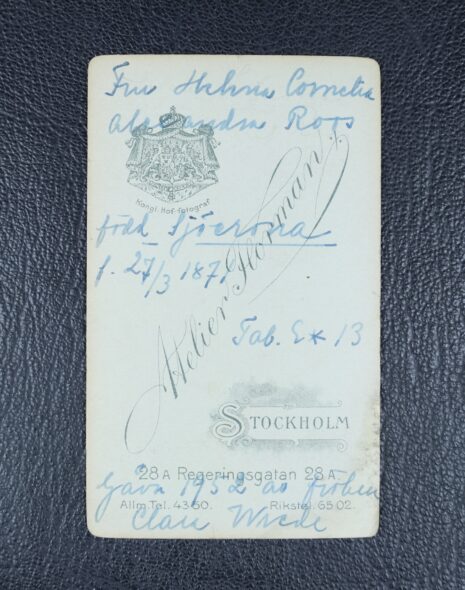 Fru Helena Cornelia
Alexandra Roos
Kongl. Hof-fotograf
Atelier Florman
född Sjöcrona
f. 27/3 1871
Tab. Ex 13
STOCKHOLM
28 A Regeringsgatan 28 A.
Gåva 1952 av fröken
Allm. Tel. 43 50. Rikstel. 65 02.
Clare Wrede